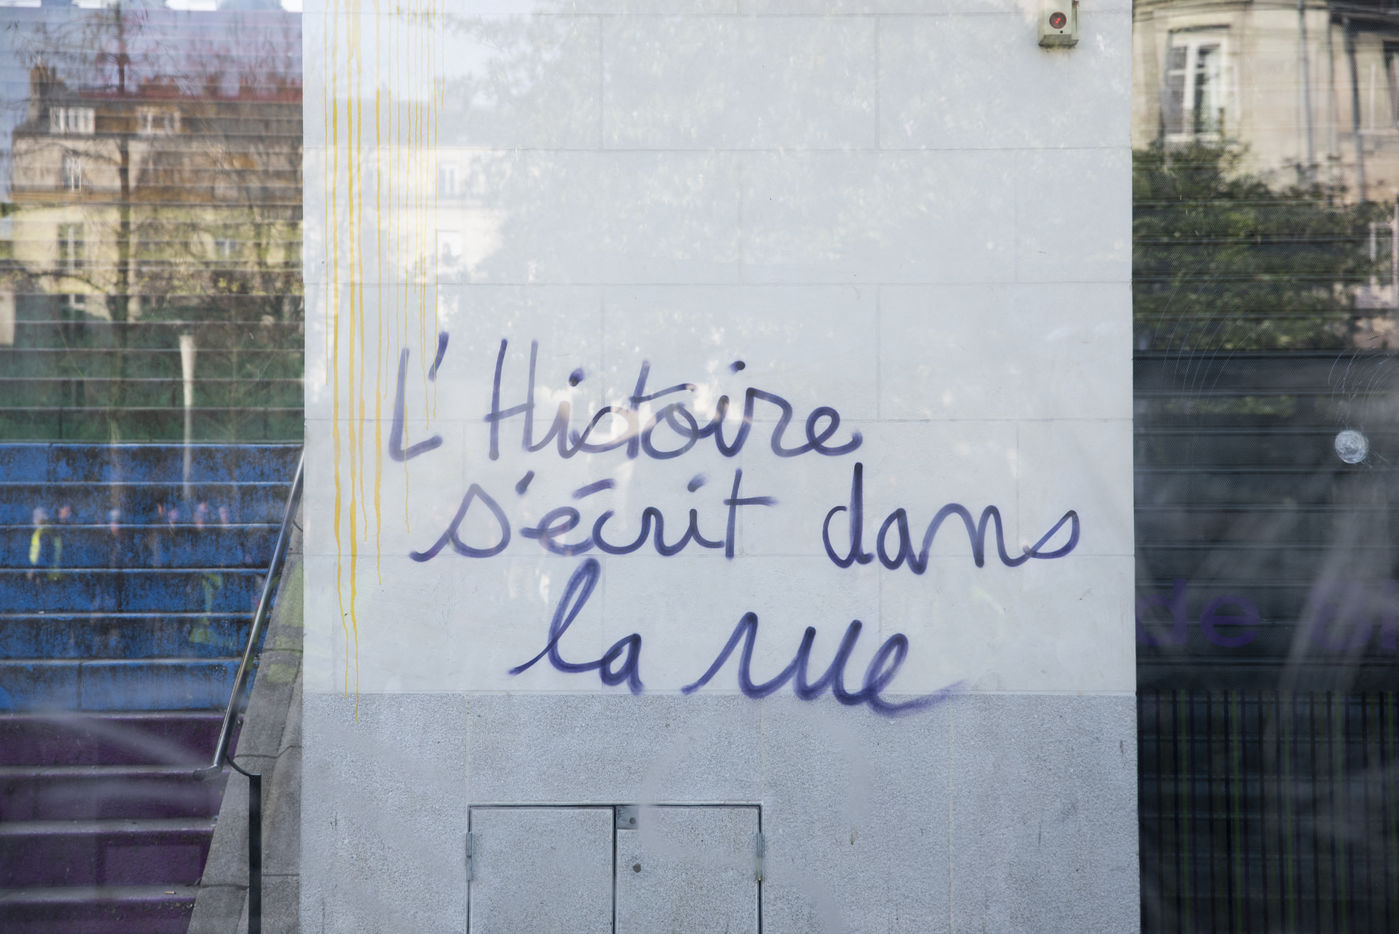 L'Histoire
s'écrit dans
la rue
de